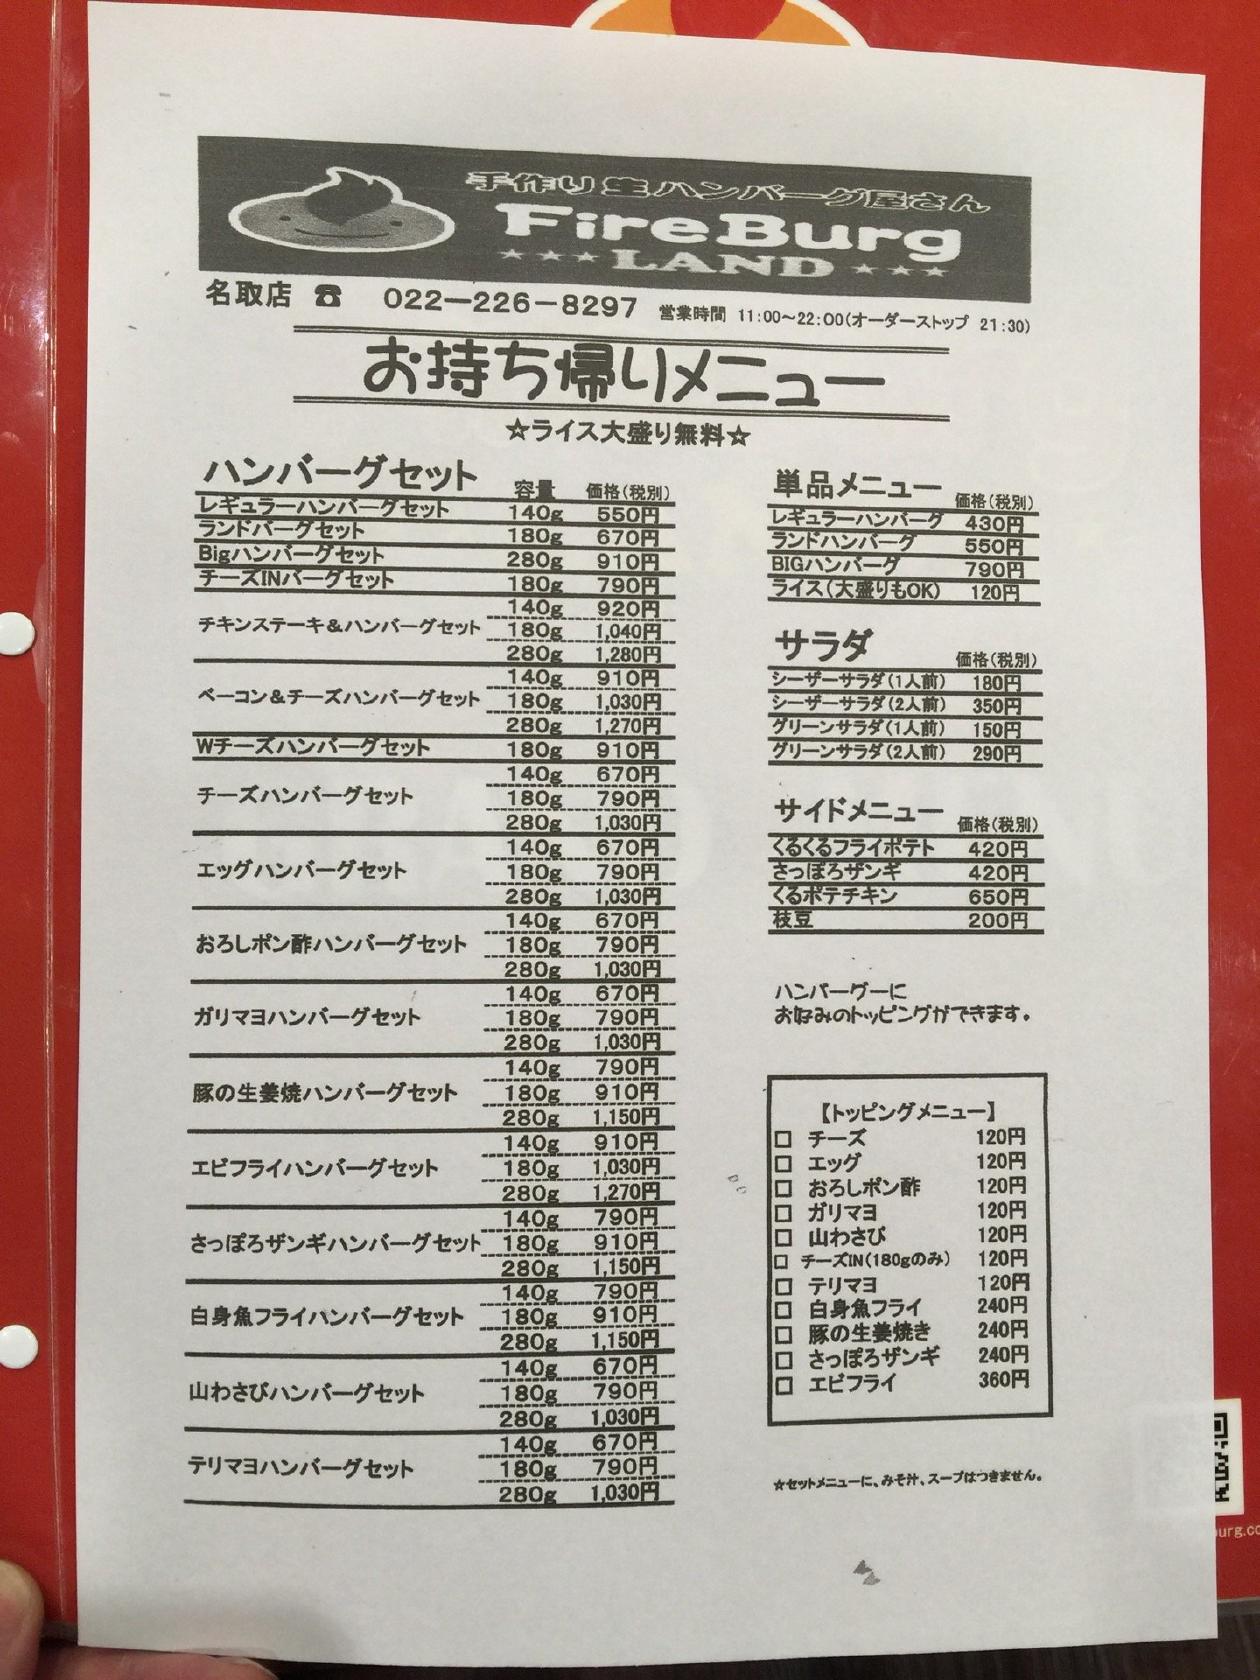 手作り生ハンバーグ屋さん
FireBurg
★★★LAND★★★
名取店 ☎ 022－226－8297 営業時間 11:00～22:00(オーダーストップ 21:30)
お持ち帰りメニュー
☆ライス大盛り無料☆
ハンバーグセット 容量 価格(税別)
レギュラーハンバーグセット 140g 550円
ランドバーグセット 180g 670円
Bigハンバーグセット 280g 910円
チーズINバーグセット 180g 790円
チキンステーキ＆ハンバーグセット 140g 920円
180g 1,040円
280g 1,280円
ベーコン＆チーズハンバーグセット 140g 910円
180g 1,030円
280g 1,270円
Wチーズハンバーグセット 180g 910円
チーズハンバーグセット 140g 670円
180g 790円
280g 1,030円
エッグハンバーグセット 140g 670円
180g 790円
280g 1,030円
おろしポン酢ハンバーグセット 140g 670円
180g 790円
280g 1,030円
ガリマヨハンバーグセット 140g 670円
180g 790円
280g 1,030円
豚の生姜焼ハンバーグセット 140g 790円
180g 910円
280g 1,150円
エビフライハンバーグセット 140g 910円
180g 1,030円
280g 1,270円
さっぽろザンギハンバーグセット 140g 790円
180g 910円
280g 1,150円
白身魚フライハンバーグセット 140g 790円
180g 910円
280g 1,150円
山わさびハンバーグセット 140g 670円
180g 790円
280g 1,030円
テリマヨハンバーグセット 140g 670円
180g 790円
280g 1,030円
単品メニュー 価格(税別)
レギュラーハンバーグ 430円
ランドハンバーグ 550円
BIGハンバーグ 790円
ライス(大盛りもOK) 120円
サラダ 価格(税別)
シーザーサラダ(1人前) 180円
シーザーサラダ(2人前) 350円
グリーンサラダ(1人前) 150円
グリーンサラダ(2人前) 290円
サイドメニュー 価格(税別)
くるくるフライポテト 420円
さっぽろザンギ 420円
くるポテチキン 650円
枝豆 200円
ハンバーグーに
お好みのトッピングができます。
【トッピングメニュー】
□ チーズ 120円
□ エッグ 120円
□ おろしポン酢 120円
□ ガリマヨ 120円
□ 山わさび 120円
□ チーズIN(180gのみ) 120円
□ テリマヨ 120円
□ 白身魚フライ 240円
□ 豚の生姜焼き 240円
□ さっぽろザンギ 240円
□ エビフライ 360円
☆セットメニューに、みそ汁、スープはつきません。